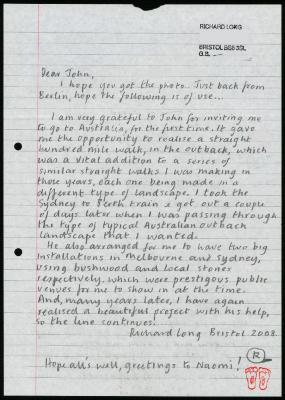 RICHARD LONG
BRISTOL BS8 5SL
G.B.
Dear John,
I hope you got the photo. Just back from
Berlin, hope the following is of use...
I am very grateful to John for inviting me
to go to Australia, for the first time. It gave
me the opportunity to realise a straight
hundred mile walk, in the outback, which
was a vital addition to a series of
similar straight walks I was making in
those years, each one being made in a
different type of landscape. I took the
Sydney to Perth train & got out a couple
of days later when I was passing through
the type of typical Australian outback
landscape that I wanted.
He also arranged for me to have two big
installations in Melbourne and Sydney,
using bushwood and local stones
respectively, which were prestigous public
venues for me to show in at the time.
And, many years later, I have again
realised a beautiful project with his help,
so the line continues.
Richard Long Bristol 2008.
Hope all's well, greetings to Naomi,!
R